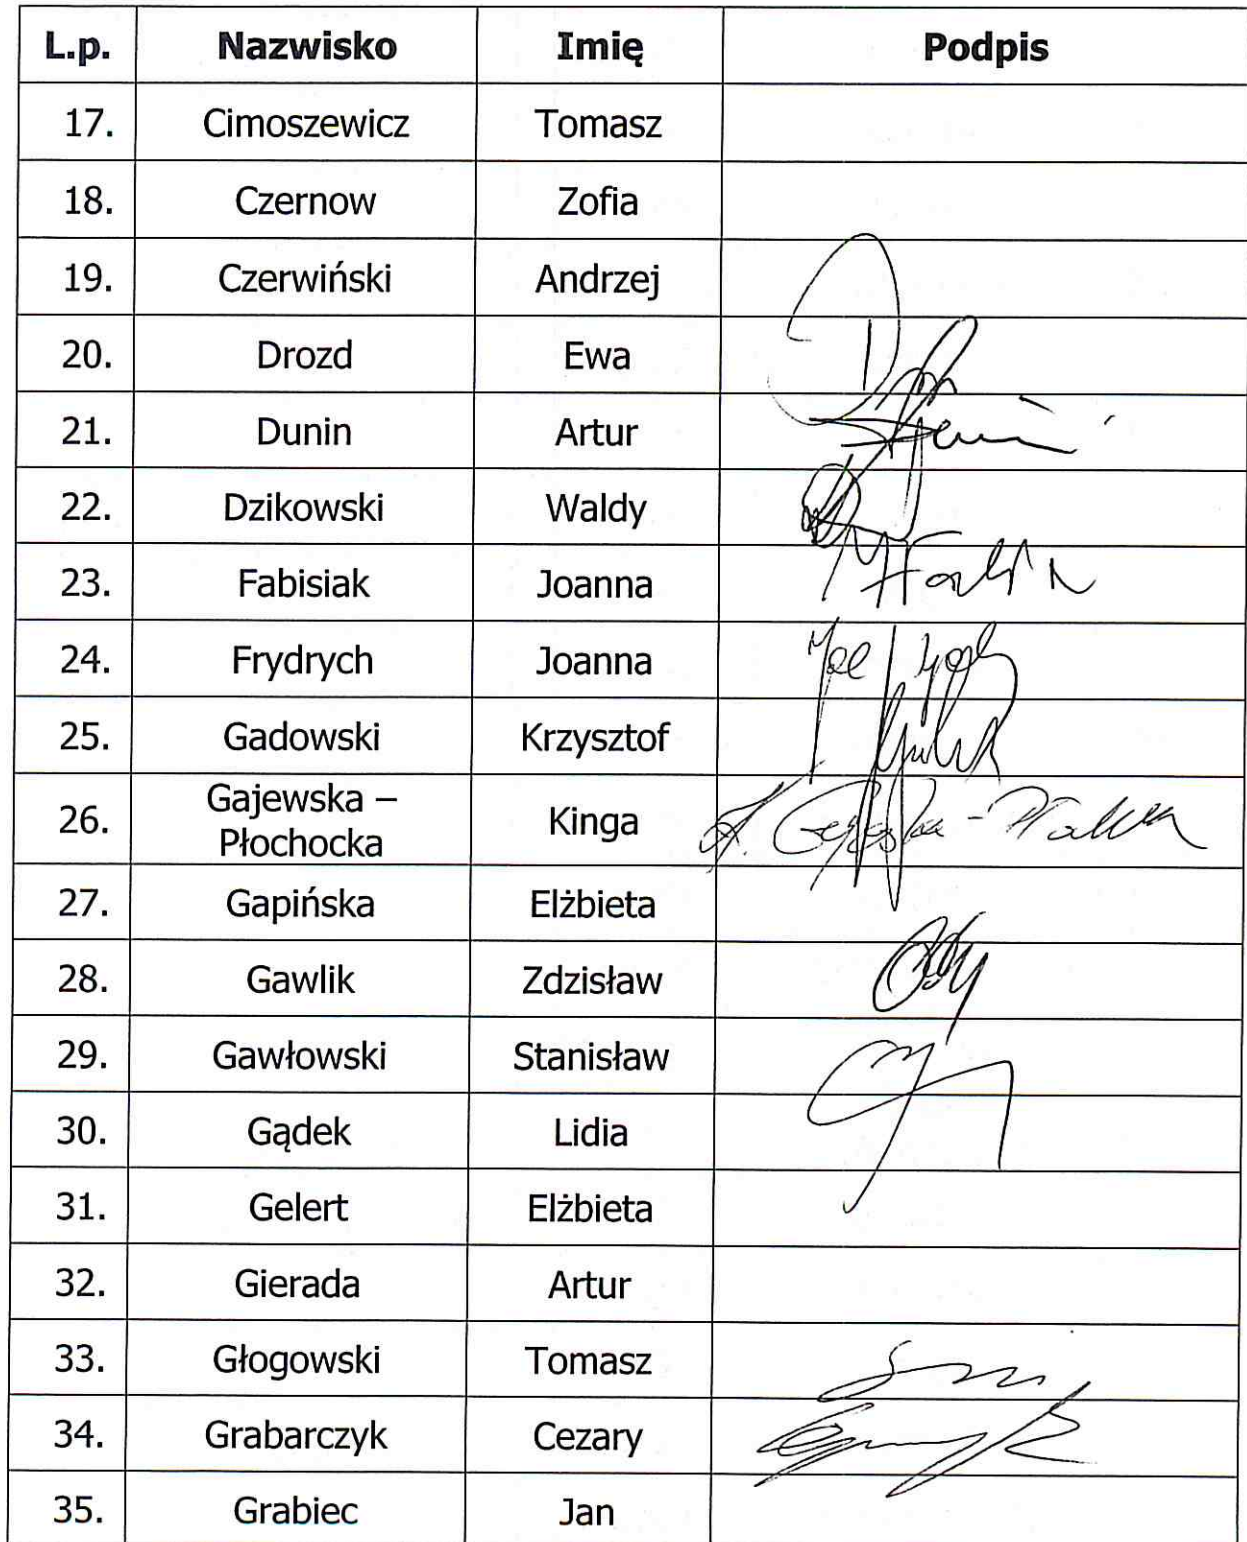 L.p. Nazwisko Imię Podpis
17. Cimoszewicz Tomasz
18. Czernow Zofia
19. Czerwiński Andrzej
20. Drozd Ewa
21. Dunin Artur
22. Dzikowski Waldy
23. Fabisiak Joanna
24. Frydrych Joanna
25. Gadowski Krzysztof
26. Gajewska –
Płochocka Kinga
27. Gapińska Elżbieta
28. Gawlik Zdzisław
29. Gawłowski Stanisław
30. Gądek Lidia
31. Gelert Elżbieta
32. Gierada Artur
33. Głogowski Tomasz
34. Grabarczyk Cezary
35. Grabiec Jan